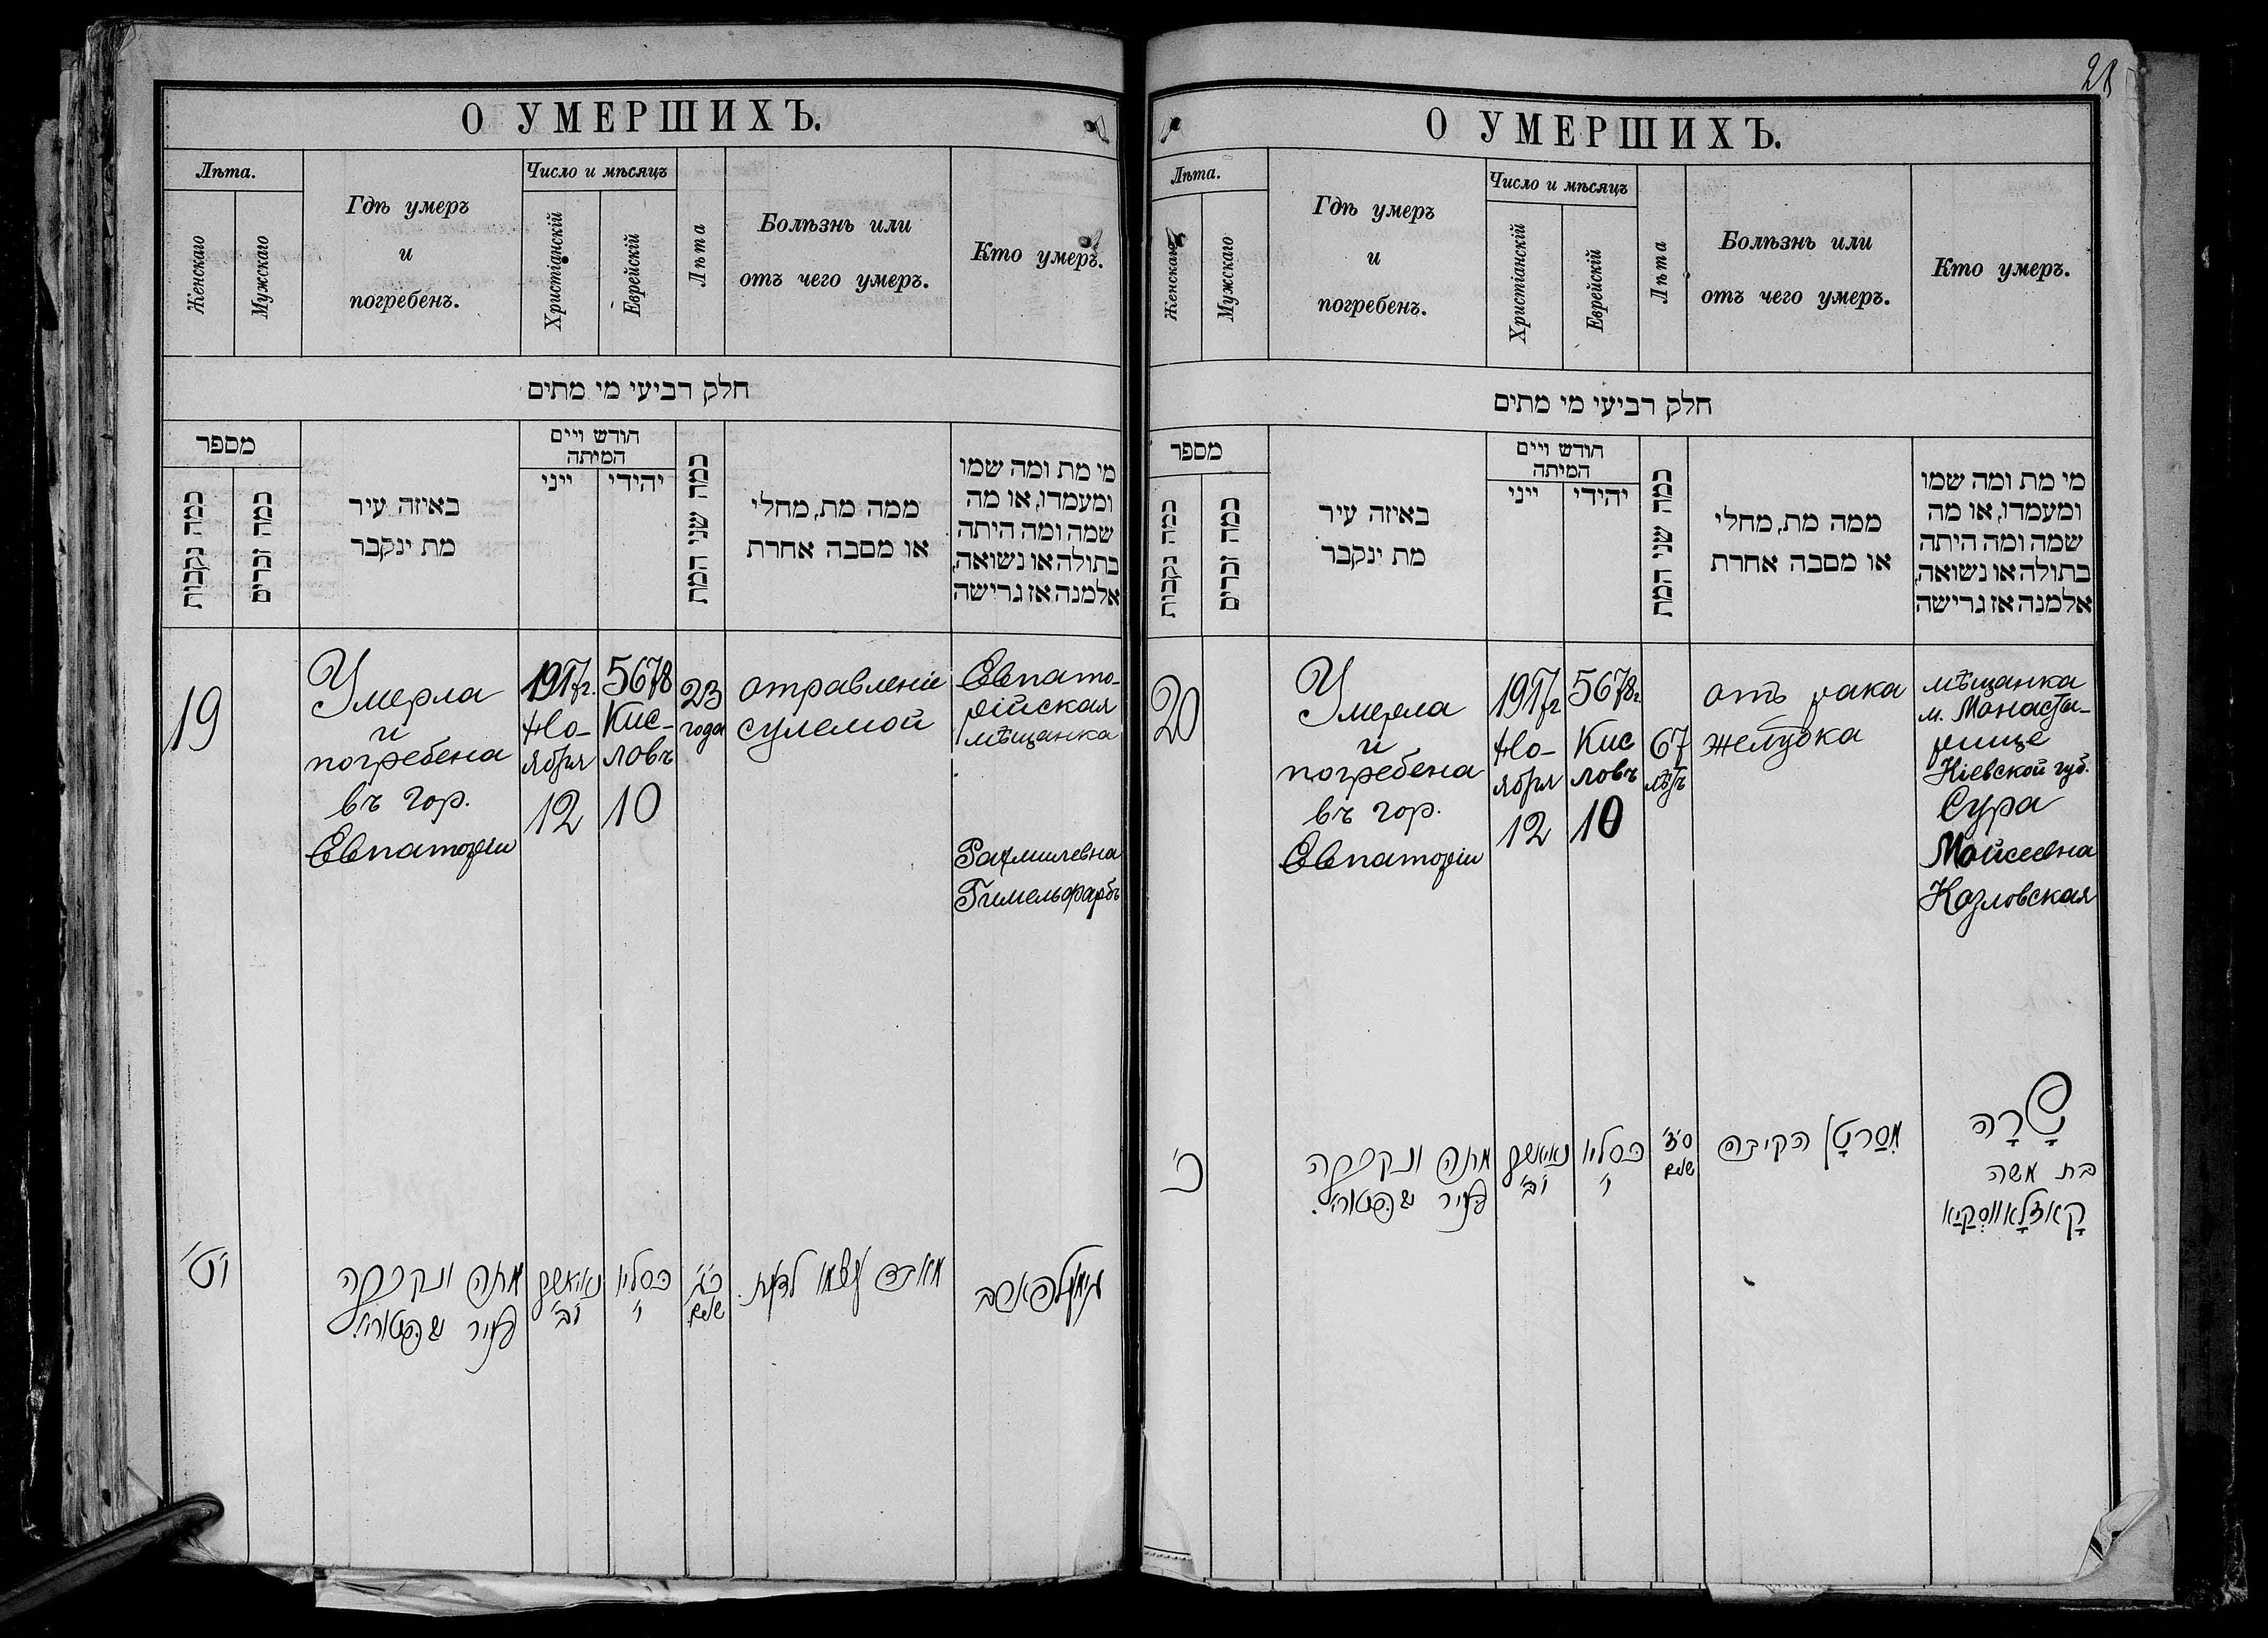 О УМЕРШИХЪ.
Лѣта.
Женскаго
Мужскаго
Гдѣ умеръ
и
погребенъ.
Число и мѣсяцъ
Христіанскій
Еврейскій
Лѣта
Болѣзнь или
отъ чего умеръ.
Кто умеръ.
חלק רביעי מי מתים
מספר
כמה נקבות
כמה זכרים
באיזה עיר
מת ינקבר
חודש ויים
המיתה
ייני
יהידי
כמה שני המת
ממה מת, מחלי
או מסבה אחרת
מי מת ומה שמו
ומעמדו, או מה
שמה ומה היתה
בתולה או נשואה,
אלמנה אז גרישה
19
Умерла
и
погребена
въ гор.
Евпаторіи
1917г.
Но-
ября
12
5678
Кис-
ловъ
10
23
года
отравленіе
сулемой
Евпато-
рійская
мѣщанка
Рахмилевна
Гимельфарбъ
י״ט
מתה ונקברה
בעיר
נאיאבער
י״ב
כסליו
י׳
כ״ג
שנים
מאבד עצמו לדעת
גימעלפארב
21
О УМЕРШИХЪ.
Лѣта.
Женскаго
Мужскаго
Гдѣ умеръ
и
погребенъ.
Число и мѣсяцъ
Христіанскій
Еврейскій
Лѣта
Болѣзнь или
отъ чего умеръ.
Кто умеръ.
חלק רביעי מי מתים
מספר
כמה נקבות
כמה זכרים
באיזה עיר
מת ינקבר
חודש ויים
המיתה
ייני
יהידי
כמה שני המת
ממה מת, מחלי
או מסבה אחרת
מי מת ומה שמו
ומעמדו, או מה
שמה ומה היתה
בתולה או נשואה,
אלמנה אז גרישה
20
Умерла
и
погребена
въ гор.
Евпаторіи
1917г
Но-
ября
12
5678г
Кис
ловъ
10
67
лѣтъ
отъ рака
желудка
мѣщанка
м. Монасты-
рище
Кіевской губ.
Сура
Мойсеевна
Козловская
כ׳
מתה ונקברה
בעיר
נאיאבער
י״ב
כסליו
י׳
ס״ז
שנים
מסרטן הקיבה
שָׂרָה
בת משה
קָאזלָאווסְקַיַא